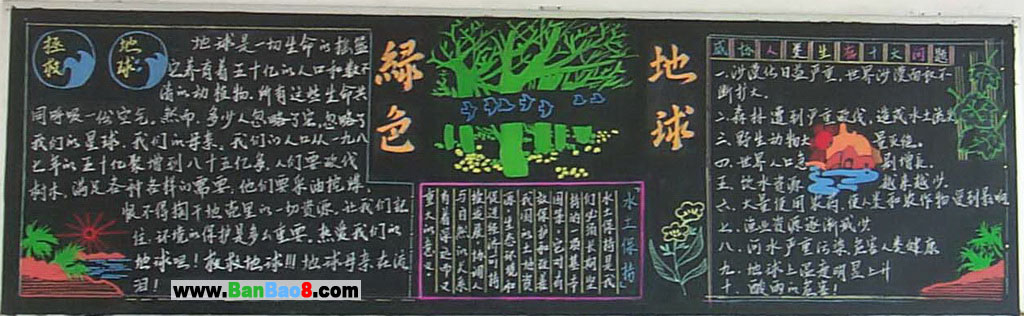 拯救
地球
地球是一切生命的摇篮
它养育着五十亿的人口和数不
清的动植物.所有这些生命共
同呼吸一份空气,然而,多少人忽略了它,忽略了
我们的星球,我们的母亲,我们的人口从一九八
七年的五十亿聚增到八十五亿多,人们要砍伐
树木,满足各种各样的需要,他们要采油挖煤、
恨不得掏干地壳里的一切资源,让我们记
住,环境的保护是多么重要,热爱我们的
地球吧!救救地球!!!地球母亲在流
泪!
绿色
地球
水土保持
水土保持是我
们必须长期坚
持的一项基本
国策,它对有
效保护和合理
我国的水土资
源、生态环境和
促进经济可持
续发展,协调人
与自然的关系
有着深远而又
重大的意义。
威胁人类生存十大问题
一.沙漠化日益严重,世界沙漠面积不
断扩大。
二.森林遭到严重砍伐,造成水土流失
三.野生动物大
量灭绝。
四.世界人口急
剧增长。
五.饮水资源
越来越少。
六、大量使用农药,使人类和农作物受到影响
七、渔业资源逐渐减少
八、河水严重污染,危害人类健康
九、地球上温度明显上升
十、酸雨的危害!
www.BanBao8.com